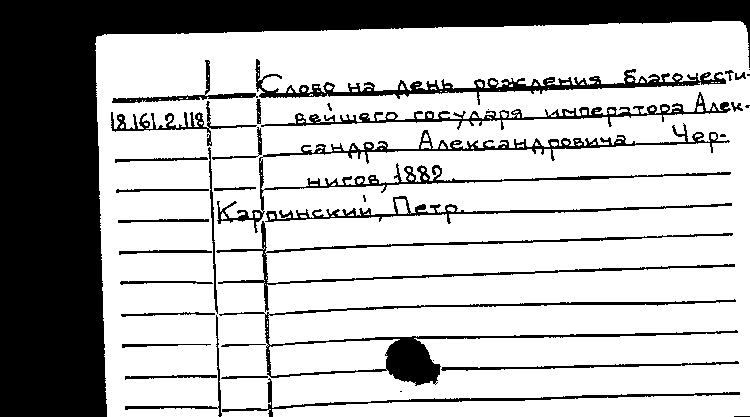 Слово на день рождения благочести-
18.161.2.118 вейшего государя императора Алек-
сандра Александровича. Чер-
нигов, 1882.
Карпинский, Петр.